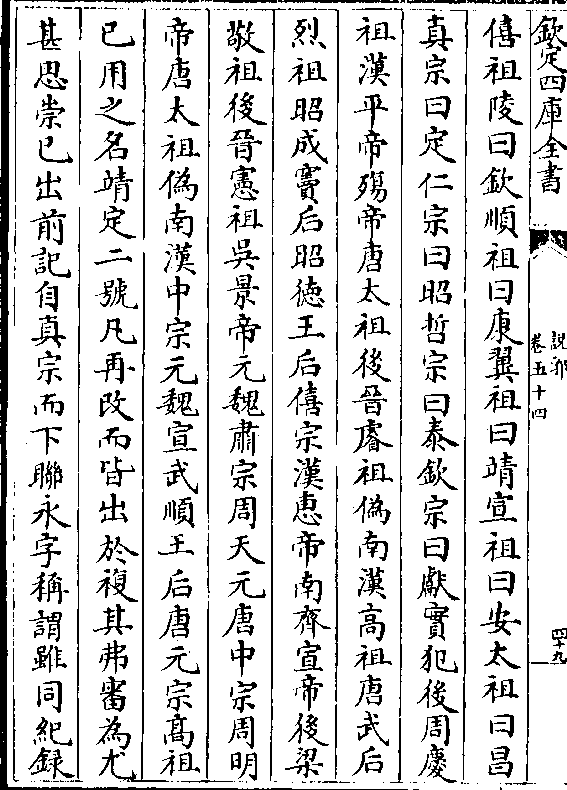 欽定四庫全書
說郛
卷五十四
四十九
僖祖陵曰欽順祖曰康翼祖曰靖宣祖曰安太祖曰昌
真宗曰定仁宗曰昭哲宗曰泰欽宗曰獻實犯後周慶
祖漢平帝殤帝唐太祖後晉睿祖偽南漢高祖唐武后
烈祖昭成竇后昭德王后僖宗漢惠帝南齊宣帝後梁
敬祖後晉憲祖吳景帝元魏肅宗周天元唐中宗周明
帝唐太祖偽南漢中宗元魏宣武順王后唐元宗高祖
已用之名靖定二號凡再改而皆出於複其弗審為尤
甚思崇已出前記自真宗而下聯永字稱謂雖同紀録